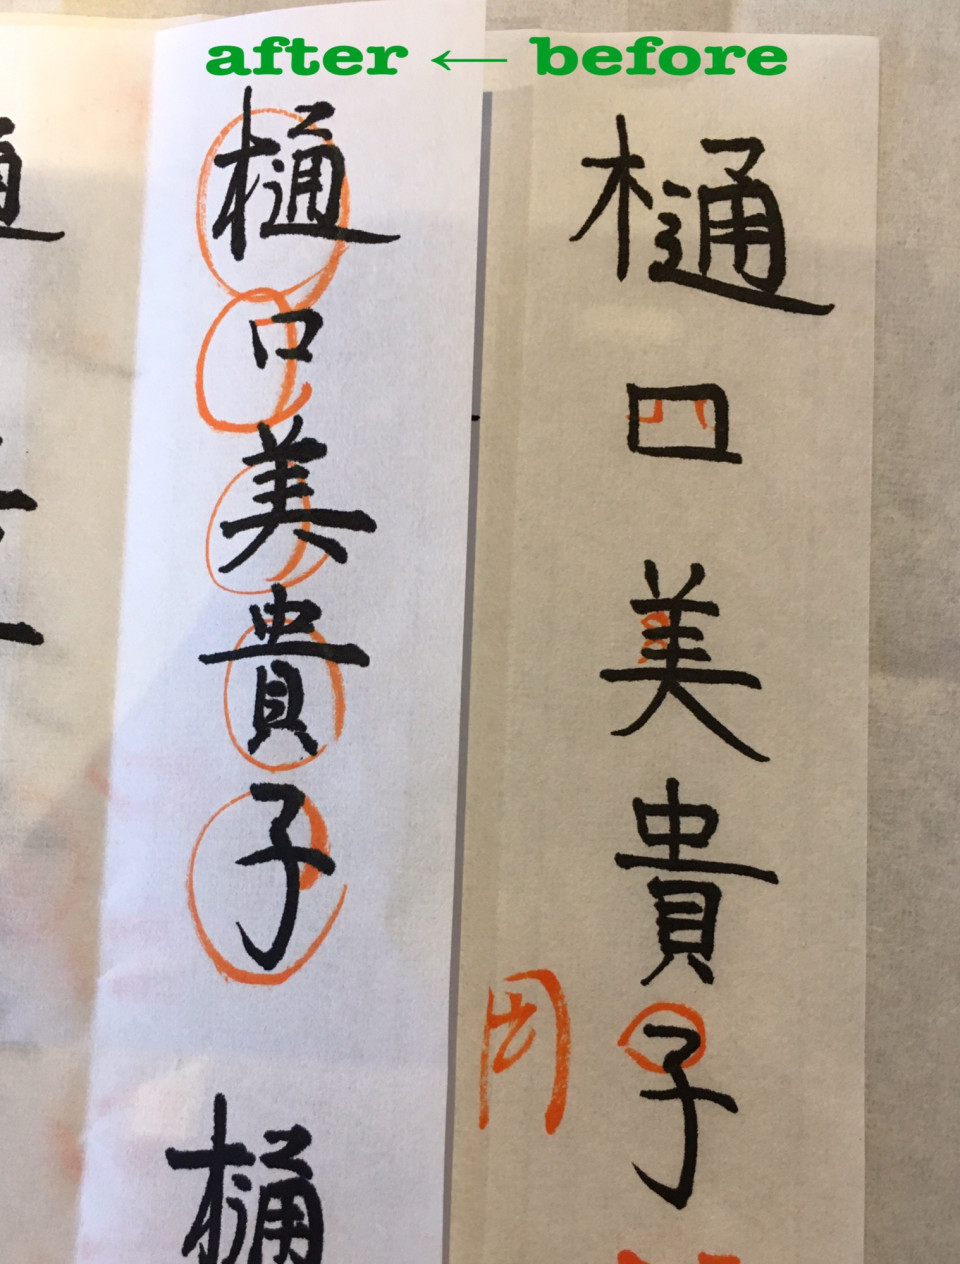 after ← before
樋口美貴子
樋口美貴子
樋